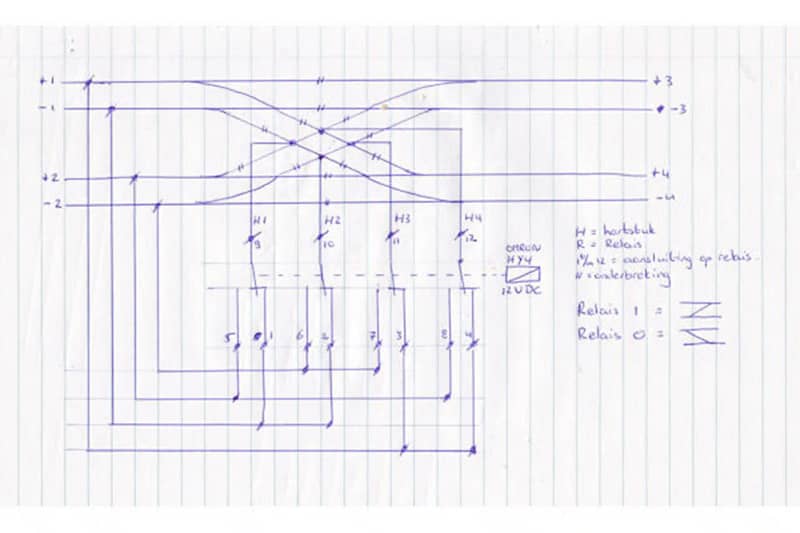 +1 +3
-1 -3
+2 +4
-2 -4
H1 H2 H3 H4
9 10 11 12
OMRON
MY4
12VDC
5 1 6 2 7 3 8 4
H = hartstuk
R = Relais
1 t/m 12 = aansluiting op relais
// = onderbreking
Relais 1 =
Relais 0 =